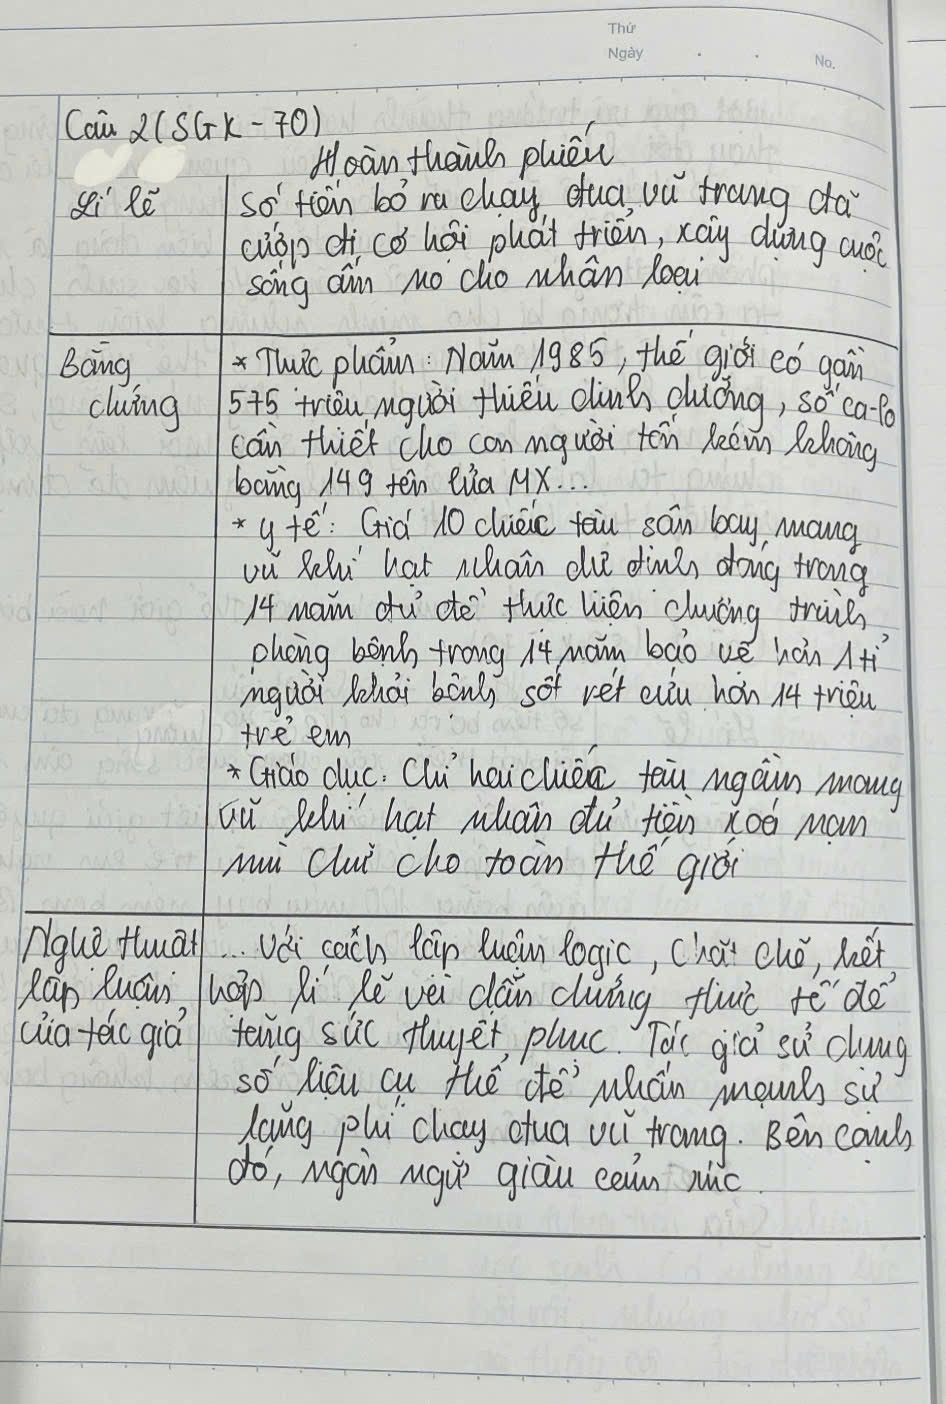 Thứ
Ngày
No.
Câu 2 (SGK - 70)
Hoàn thành phiếu
Lí lẽ
Số tiền bỏ ra chạy đua vũ trang đã
cướp đi cơ hội phát triển, xây dựng cuộc
sống ấm no cho nhân loại
Bằng
chứng
* Thực phẩm: Năm 1985, thế giới có gần
575 triệu người thiếu dinh dưỡng, số ca-lo
cần thiết cho con người tốn kém không
bằng 149 tên lửa MX...
* y tế: Giá 10 chiếc tàu sân bay mang
vũ khí hạt nhân dự định đóng trong
14 năm đủ để thực hiện chương trình
phòng bệnh trong 14 năm bảo vệ hơn 1 tỉ
người khỏi bệnh sốt rét cứu hơn 14 triệu
trẻ em
* Giáo dục: Chỉ hai chiếc tàu ngầm mang
vũ khí hạt nhân đủ tiền xoá nạn
mù chữ cho toàn thế giới
Nghệ thuật
lập luận
của tác giả
... với cách lập luận logic, chặt chẽ, kết
hợp lí lẽ với dẫn chứng thực tế để
tăng sức thuyết phục. Tác giả sử dụng
số liệu cụ thể để nhấn mạnh sự
lãng phí chạy đua vũ trang. Bên cạnh
đó, ngôn ngữ giàu cảm xúc.